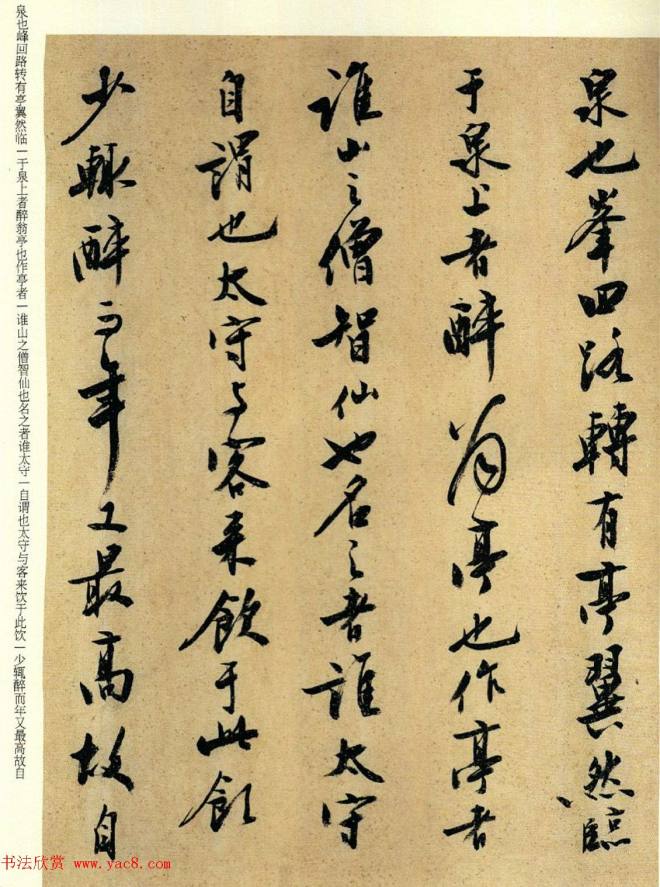 泉也峯回路轉有亭翼然臨
于泉上者醉翁亭也作亭者
誰山之僧智仙也名之者誰太守
自謂也太守与客來飲于此飲
少輒醉而年又最高故自
泉也峰回路转有亭翼然临一于泉上者醉翁亭也作亭者一谁山之僧智仙也名之者谁太守一自谓也太守与客来饮于此饮一少辄醉而年又最高故自
书法欣赏 www.yac8.com